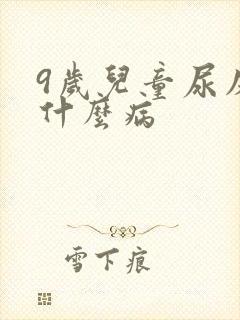 9歲兒童尿
什麼病
雪下痕